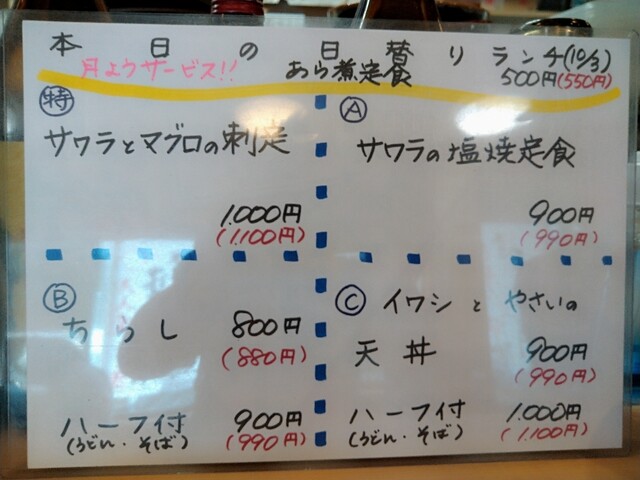 本日の日替りランチ(10/3)
月ようサービス!! あら煮定食 500円(550円)
特
サワラとマグロの刺定
1.000円
(1.100円)
A
サワラの塩焼定食
900円
(990円)
B
ちらし 800円
(880円)
ハーフ付 900円
(うどん・そば) (990円)
C イワシとやさいの
天丼 900円
(990円)
ハーフ付 1.000円
(うどん・そば) (1.100円)